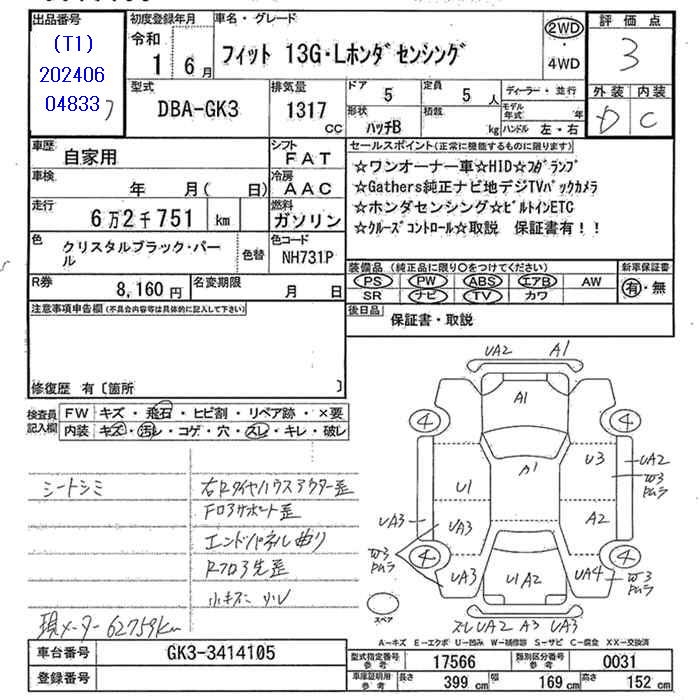 出品番号
(T1)
202406
04833
初度登録年月
令和
1 6月
車名・グレード
フィット 13G・Lホンダセンシング
2WD
・4WD
評価点
3
外装 内装
D C
型式
DBA-GK3
排気量
1317
CC
ドア
5
定員
5人
形状
ハッチB
積載
kg
ディーラー・並行
モデル年式 年
ハンドル 左・右
車歴
自家用
シフト
FAT
車検
年 月( 日)
冷房
AAC
走行
6万2千751 km
燃料
ガソリン
色
クリスタルブラック・パール
色替
色コード
NH731P
R券
8,160円
名変期限
月 日
セールスポイント(正常に機能するものに限ります)
☆ワンオーナー車☆HID☆フォグランプ
☆Gathers純正ナビ地デジTVバックカメラ
☆ホンダセンシング☆ビルトインETC
☆クルーズコントロール☆取説 保証書有！！
装備品(純正品に限り○をつけてください)
新車保証書
PS PW ABS エアB AW
SR ナビ TV カワ
有・無
後日品
保証書・取説
注意事項申告欄(不具合内容等は具体的に記入して下さい)
修復歴 有〔箇所 〕
検査員記入欄
FW キズ・飛石・ヒビ割・リペア跡・×要
内装 キズ・汚レ・コゲ・穴・スレ・キレ・破レ
シートシミ
右Rタイヤハウスアウター歪
Fロアサポート歪
エンドパネル曲り
Rフロア先歪
小キズ 小U
現メーター62759km
UA2 A1
4 A1 4
A1
U3
UA2
W3
U1
UA3 UA3
A2
W3
4 4
UA3
U1A2
UA4
W3
スペア
スレUA2 A3 UA3
A-キズ E-エクボ U-凹み W-補修跡 S-サビ C-腐食 XX-交換済
車台番号
GK3-3414105
登録番号
型式指定番号 参考
17566
類別区分番号 参考
0031
車庫証明用 参考
長さ 399 cm
幅 169 cm
高さ 152 cm